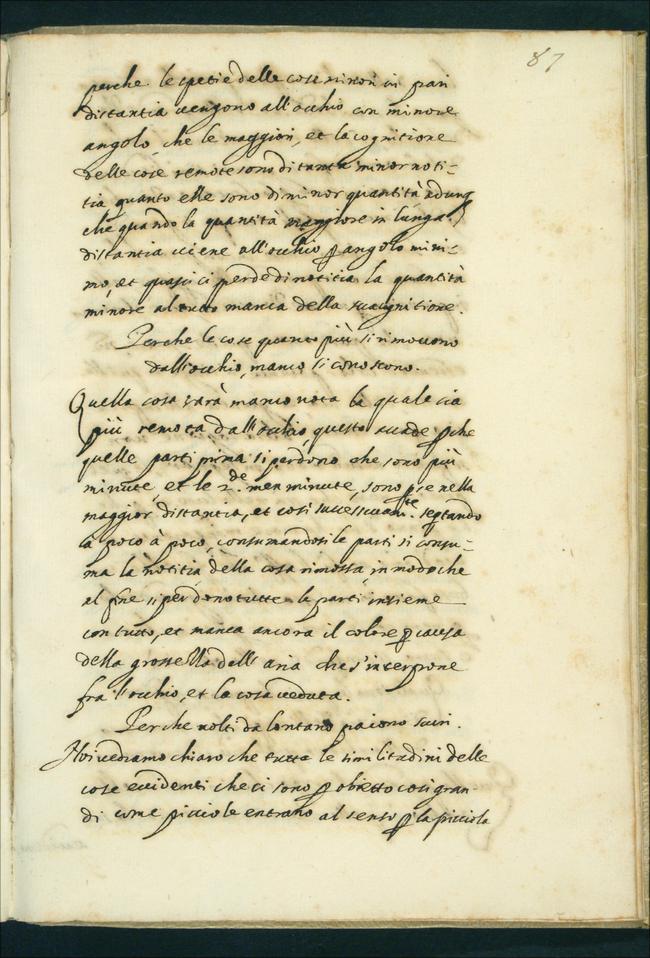 87
perche le spetie delle cose minori in pari
distantia vengono all'occhio con minore
angolo, che le maggiori, et la cognitione
delle cose remote sono di tanta minor noti-
tia quanto elle sono di minor quantità adunq
che quando la quantità maggiore in lunga
distantia viene all'occhio p angolo mini-
mo, et quasi ci perde di notitia la quantità
minore al tutto manca della sua cognitione.
Perche le cose quanto più si rimovono
dall'occhio, manco si conoscono.
Quella cosa sarà manco nota la quale sia
più remota dall'occhio, questo accade pche
quelle parti prima si perdono che sono più
minute, et le 2.de men minute, sono pse nella
maggior distantia, et cosi successivam.te seqtando
à poco à poco, consumandosi le parti si consu-
ma la notitia della cosa rimossa, in modo che
al fine si perdono tutte le parti insieme
con tutto, et manca ancora il colore p causa
della grossezza dell'aria che s'interpone
fra l'occhio, et la cosa veduta.
Perche volti da lontano paiono scuri.
Noi vediamo chiaro che tutte le similitudini delle
cose evidenti che ci sono p obietto cosi gran-
di come picciole entrano al senso p la picciola